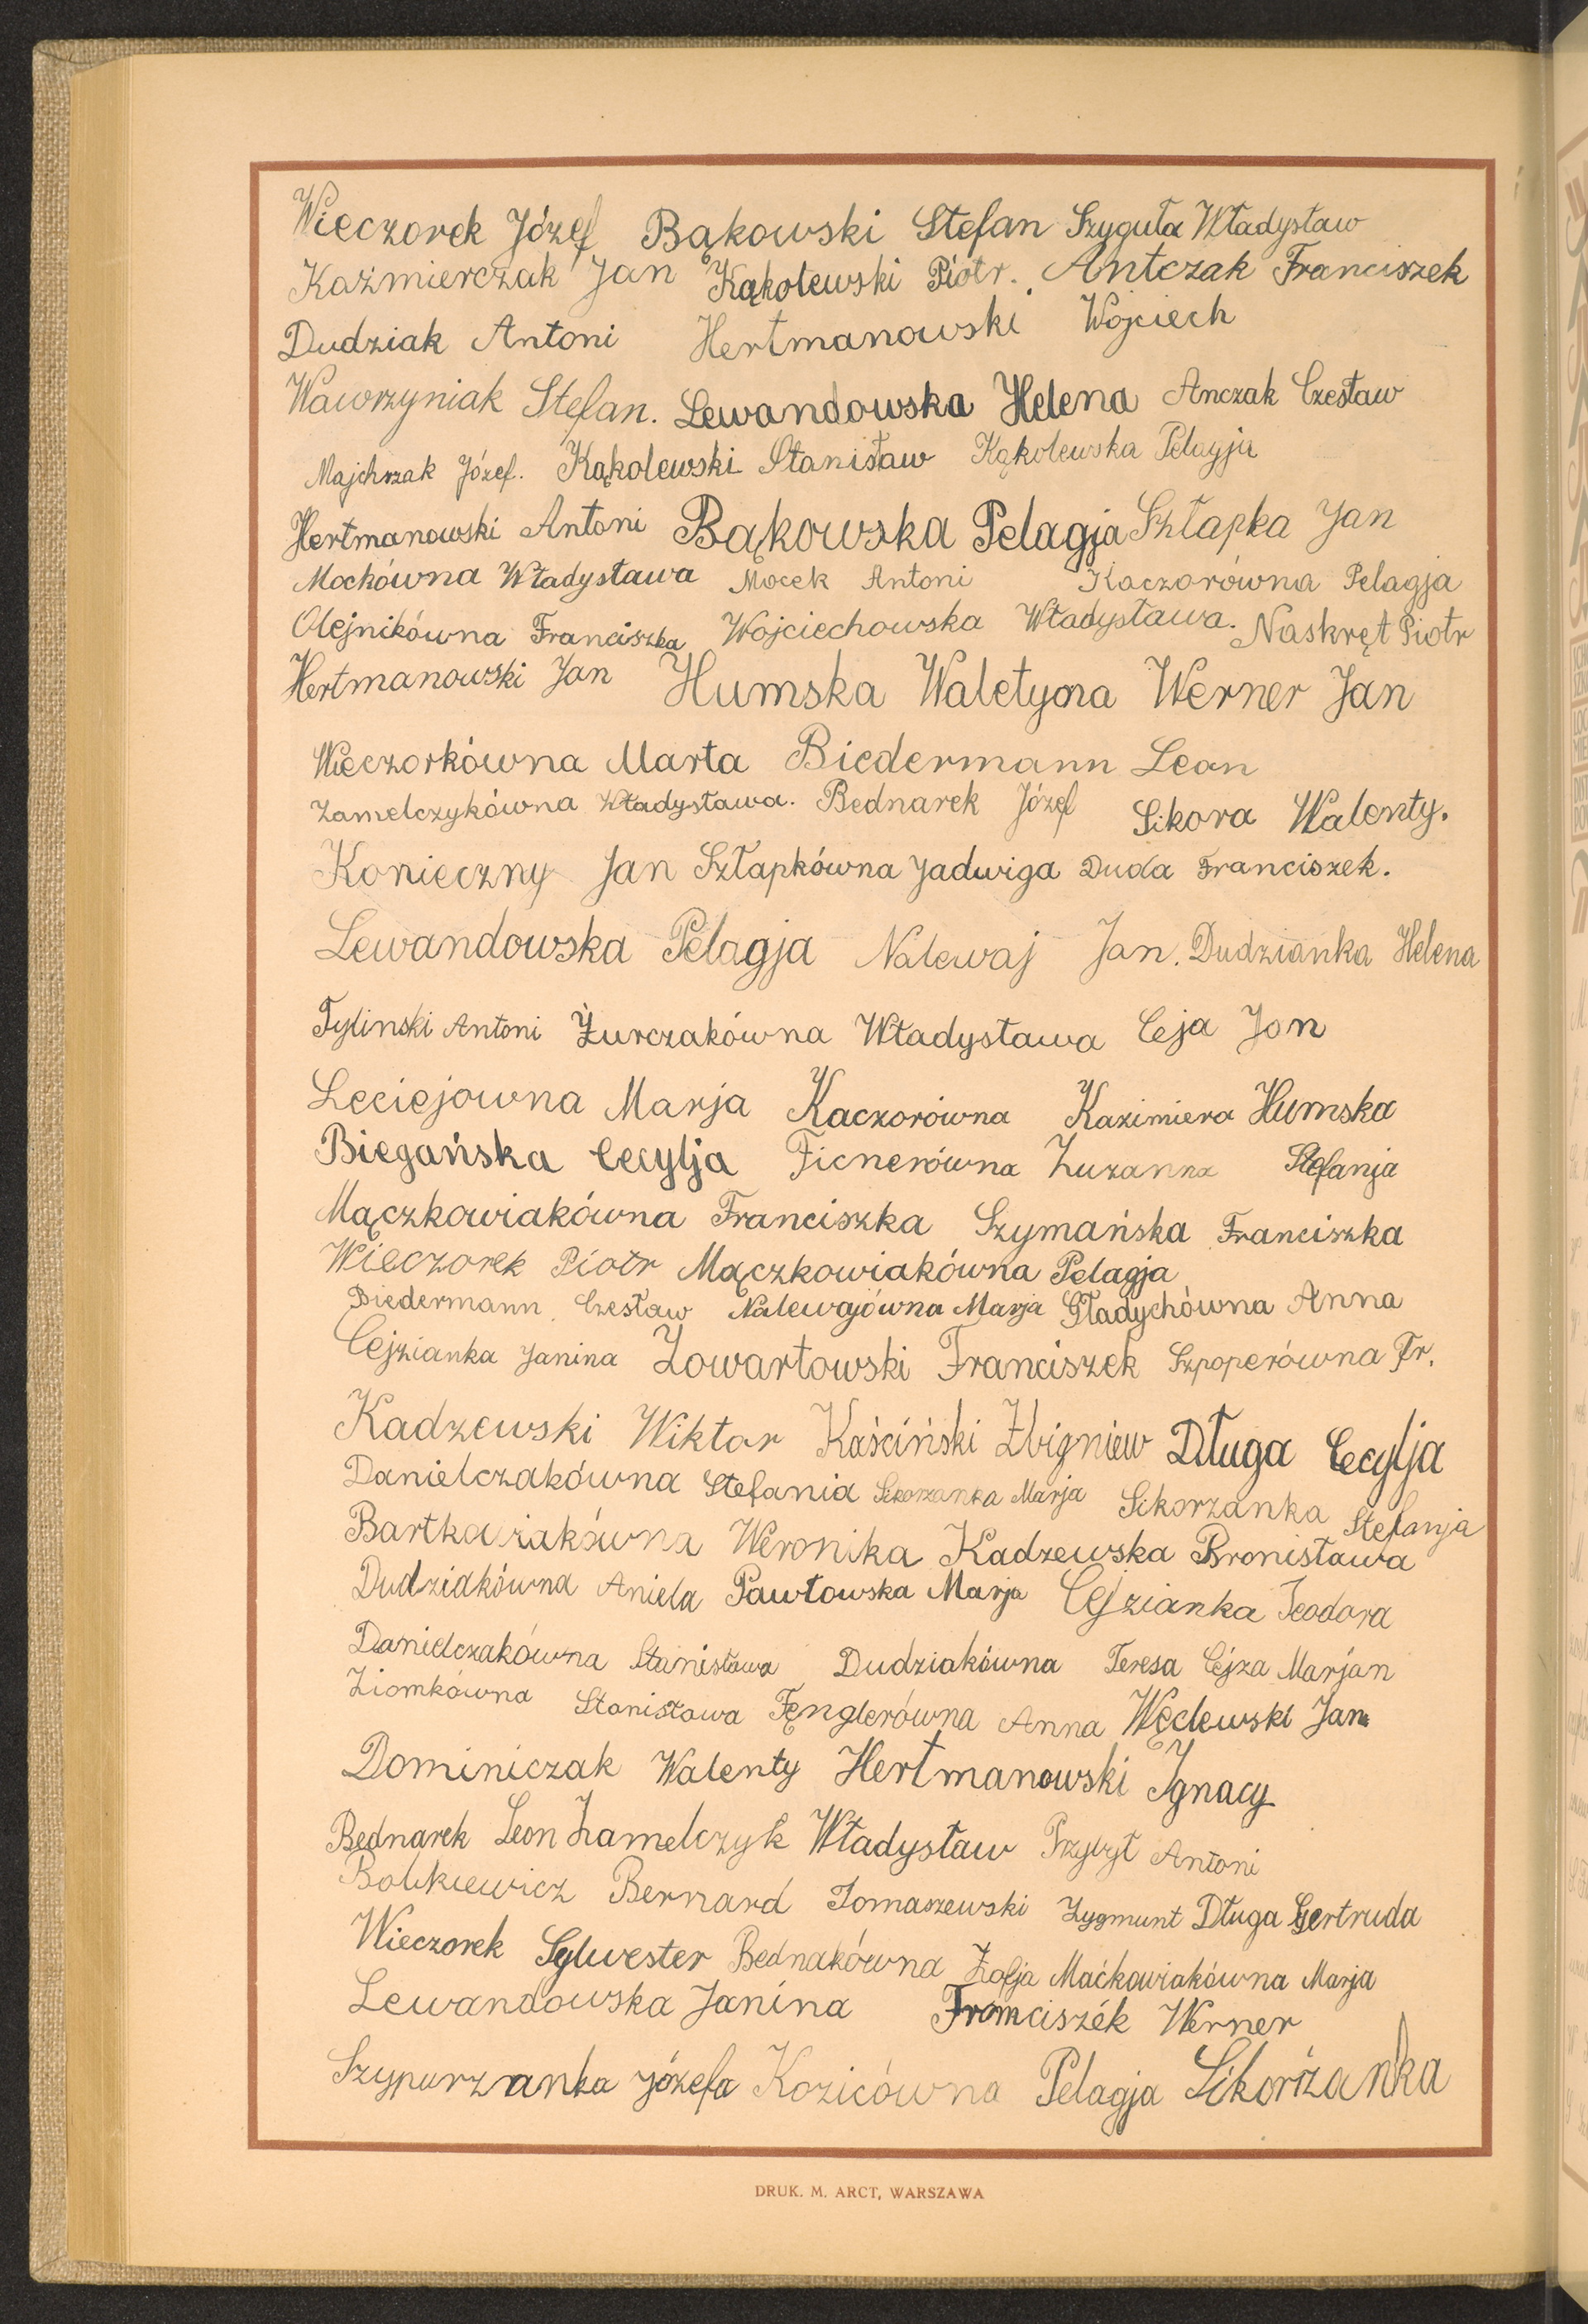 Wieczorek Józef Bąkowski Stefan Szyguła Władysław
Kaźmierczak Jan Kąkolewski Piotr. Antczak Franciszek
Dudziak Antoni Hertmanowski Wojciech
Wawrzyniak Stefan. Lewandowska Helena Anczak Czesław
Majchrzak Józef. Kąkolewski Stanisław Kąkolewska Pelagja
Hertmanowski Antoni Bąkowska Pelagja Szłapka Jan
Mockówna Władysława Mocek Antoni Kaczorówna Pelagja
Olejnikówna Franciszka Wojciechowska Władysława. Naskręt Piotr
Hertmanowski Jan Humska Waletyna Werner Jan
Wieczorkówna Marta Biedermann Leon
Zamelczykówna Władysława. Bednarek Józef Sikora Walenty.
Konieczny Jan Szłapkówna Jadwiga Duda Franciszek.
Lewandowska Pelagja Nalewaj Jan. Dudzianka Helena
Tylinski Antoni Żurczakówna Władysława Ceja Jan
Leciejowna Marja Kaczorówna Kazimiera Humska
Biegańska Cecylja Ficnerówna Zuzanna Stefanja
Mączkowiakówna Franciszka Szymańska Franciszka
Wieczorek Piotr Mączkowiakówna Pelagja
Biedermann Czesław Nalewajówna Marja Gładychówna Anna
Cejzianka Janina Zowartowski Franciszek Szpoperówna Fr.
Kadzewski Wiktor Kaściński Zbigniew Długa Cecylja
Danielczakówna Stefania Sikorzanka Marja Sikorzanka Stefanja
Bartkowiakówna Weronika Kadzewska Bronisława
Dudziakówna Aniela Pawłowska Marja Cejzianka Teodora
Danielczakówna Stanisława Dudziakówna Teresa Cejza Marjan
Ziomkówna Stanisława Fenglerówna Anna Węclewski Jan
Dominiczak Walenty Hertmanowski Ignacy
Bednarek Leon Zamelczyk Władysław Przybył Antoni
Bolikiewicz Bernard Tomaszewski Zygmunt Długa Gertruda
Wieczorek Sylwester Bednakówna Zofja Maćkowiakówna Marja
Lewandowska Janina Franciszék Werner
Szypurzanka Józefa Kozicówna Pelagja Sikorzanka
DRUK. M. ARCT, WARSZAWA